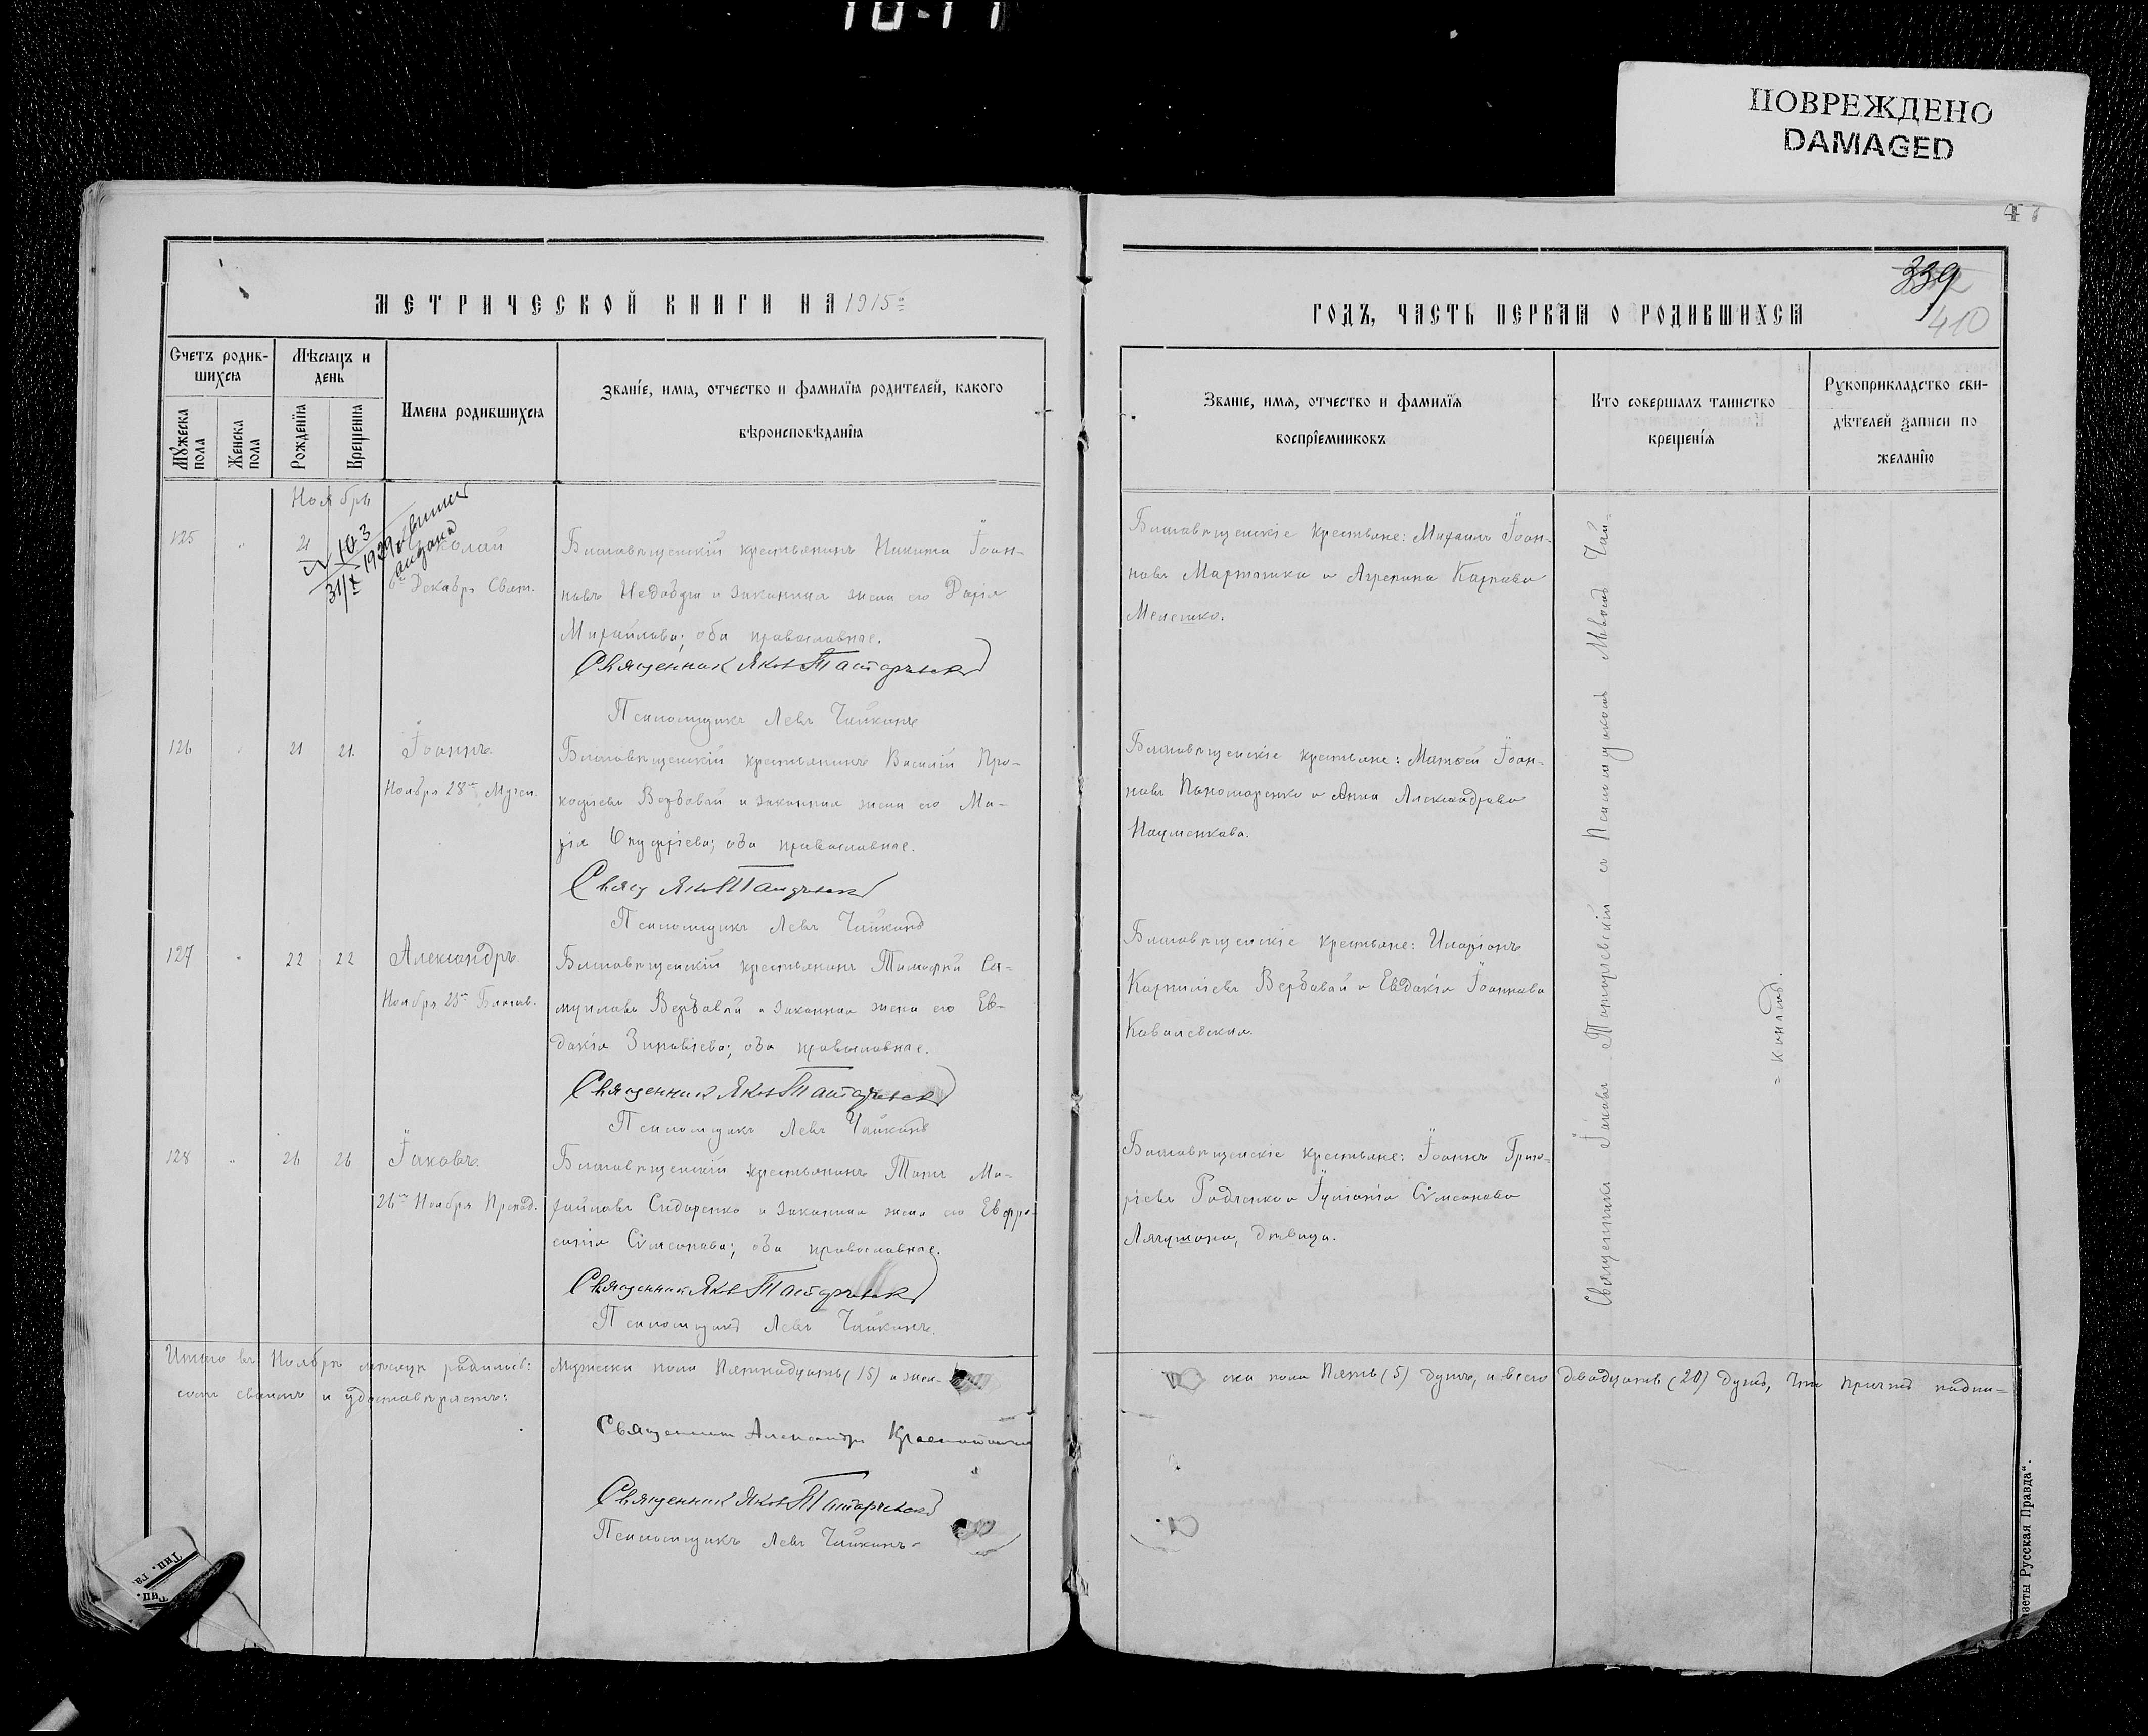 10-11
ПОВРЕЖДЕНО
DAMAGED
МЕТРИЧЕСКОЙ КНИГИ НА 1915
ГОДЪ, ЧАСТЬ ПЕРВАЯ О РОДИВШИХСЯ
339
410
Счетъ родив-
шихся
Мѣсяцъ и
день
Мужеска пола
Женска пола
Рожденїя
Крещенїя
Имена родившихся
Званїе, имя, отчество и фамилїя родителей, какого
вѣроисповѣданїя
Званїе, имя, отчество и фамилїя
воспрїемниковъ
Кто совершалъ таинство
крещенїя
Рукоприкладство сви-
дѣтелей записи по
желанїю
Ноябрь
125 " 21 Николай
Декабря Свят.
№ 103
31/X 1929 выпись
выдана
Благовѣщенскій крестьянинъ Никита Іоан-
новъ Недобуга и законная жена его Дарія
Михайлова; оба православные.
Священник Яков Татаревск
Псаломщикъ Левъ Чайкинъ
Благовѣщенскіе крестьяне: Михаилъ Іоан-
новъ и Агрепина Карпова
Мелешко.
126 " 21 21. Іоаннъ.
Ноября 28го Мучен.
Благовѣщенскій крестьянинъ Василій Про-
кофіевъ Вербовой и законная жена его Ма-
рія Онуфріева; оба православные.
Свящ Яков Татаревск
Псаломщикъ Левъ Чайкинъ
Благовѣщенскіе крестьяне: Матѳей Іоан-
новъ Пономаренко и Анна Александрова
Науменкова.
127 " 22 22 Александръ.
Ноября 23го Благов.
Благовѣщенскій крестьянинъ Тимофей Са-
муиловъ Вербовой и законная жена его Ев-
докія Зиновіева; оба православные.
Священник Яков Татаревск
Псаломщикъ Левъ Чайкинъ
Благовѣщенскіе крестьяне: Иларіонъ
Корниліевъ Вербовой и Евдокія Іоаннова
Ковалевская.
128 " 26 26 Іаковъ.
26го Ноября Препод.
Благовѣщенскій крестьянинъ Титъ Ми-
хайловъ Сидоренко и законная жена его Евфро-
синія Сѵмеонова; оба православные.
Священник Яков Татаревск
Псаломщикъ Левъ Чайкинъ.
Благовѣщенскіе крестьяне: Іоаннъ Григо-
ріевъ и Іуліанія Сѵмеонова
дѣвица.
Священникъ Іаковъ Татаревскій съ Псаломщикомъ Львомъ Чай-
= кинымъ.
Итого въ Ноябрѣ мѣсяцѣ родилось: Мужеска пола Пятнадцать (15) и жен-
ска пола Пять (5) душъ, и всего двадцать (20) душъ, Что причтъ подпи-
сомъ своимъ и удостовѣряетъ:
Священник Александръ
Священник Яков Татаревск
Псаломщикъ Левъ Чайкинъ
Тип. га
зеты Русская Правда“.